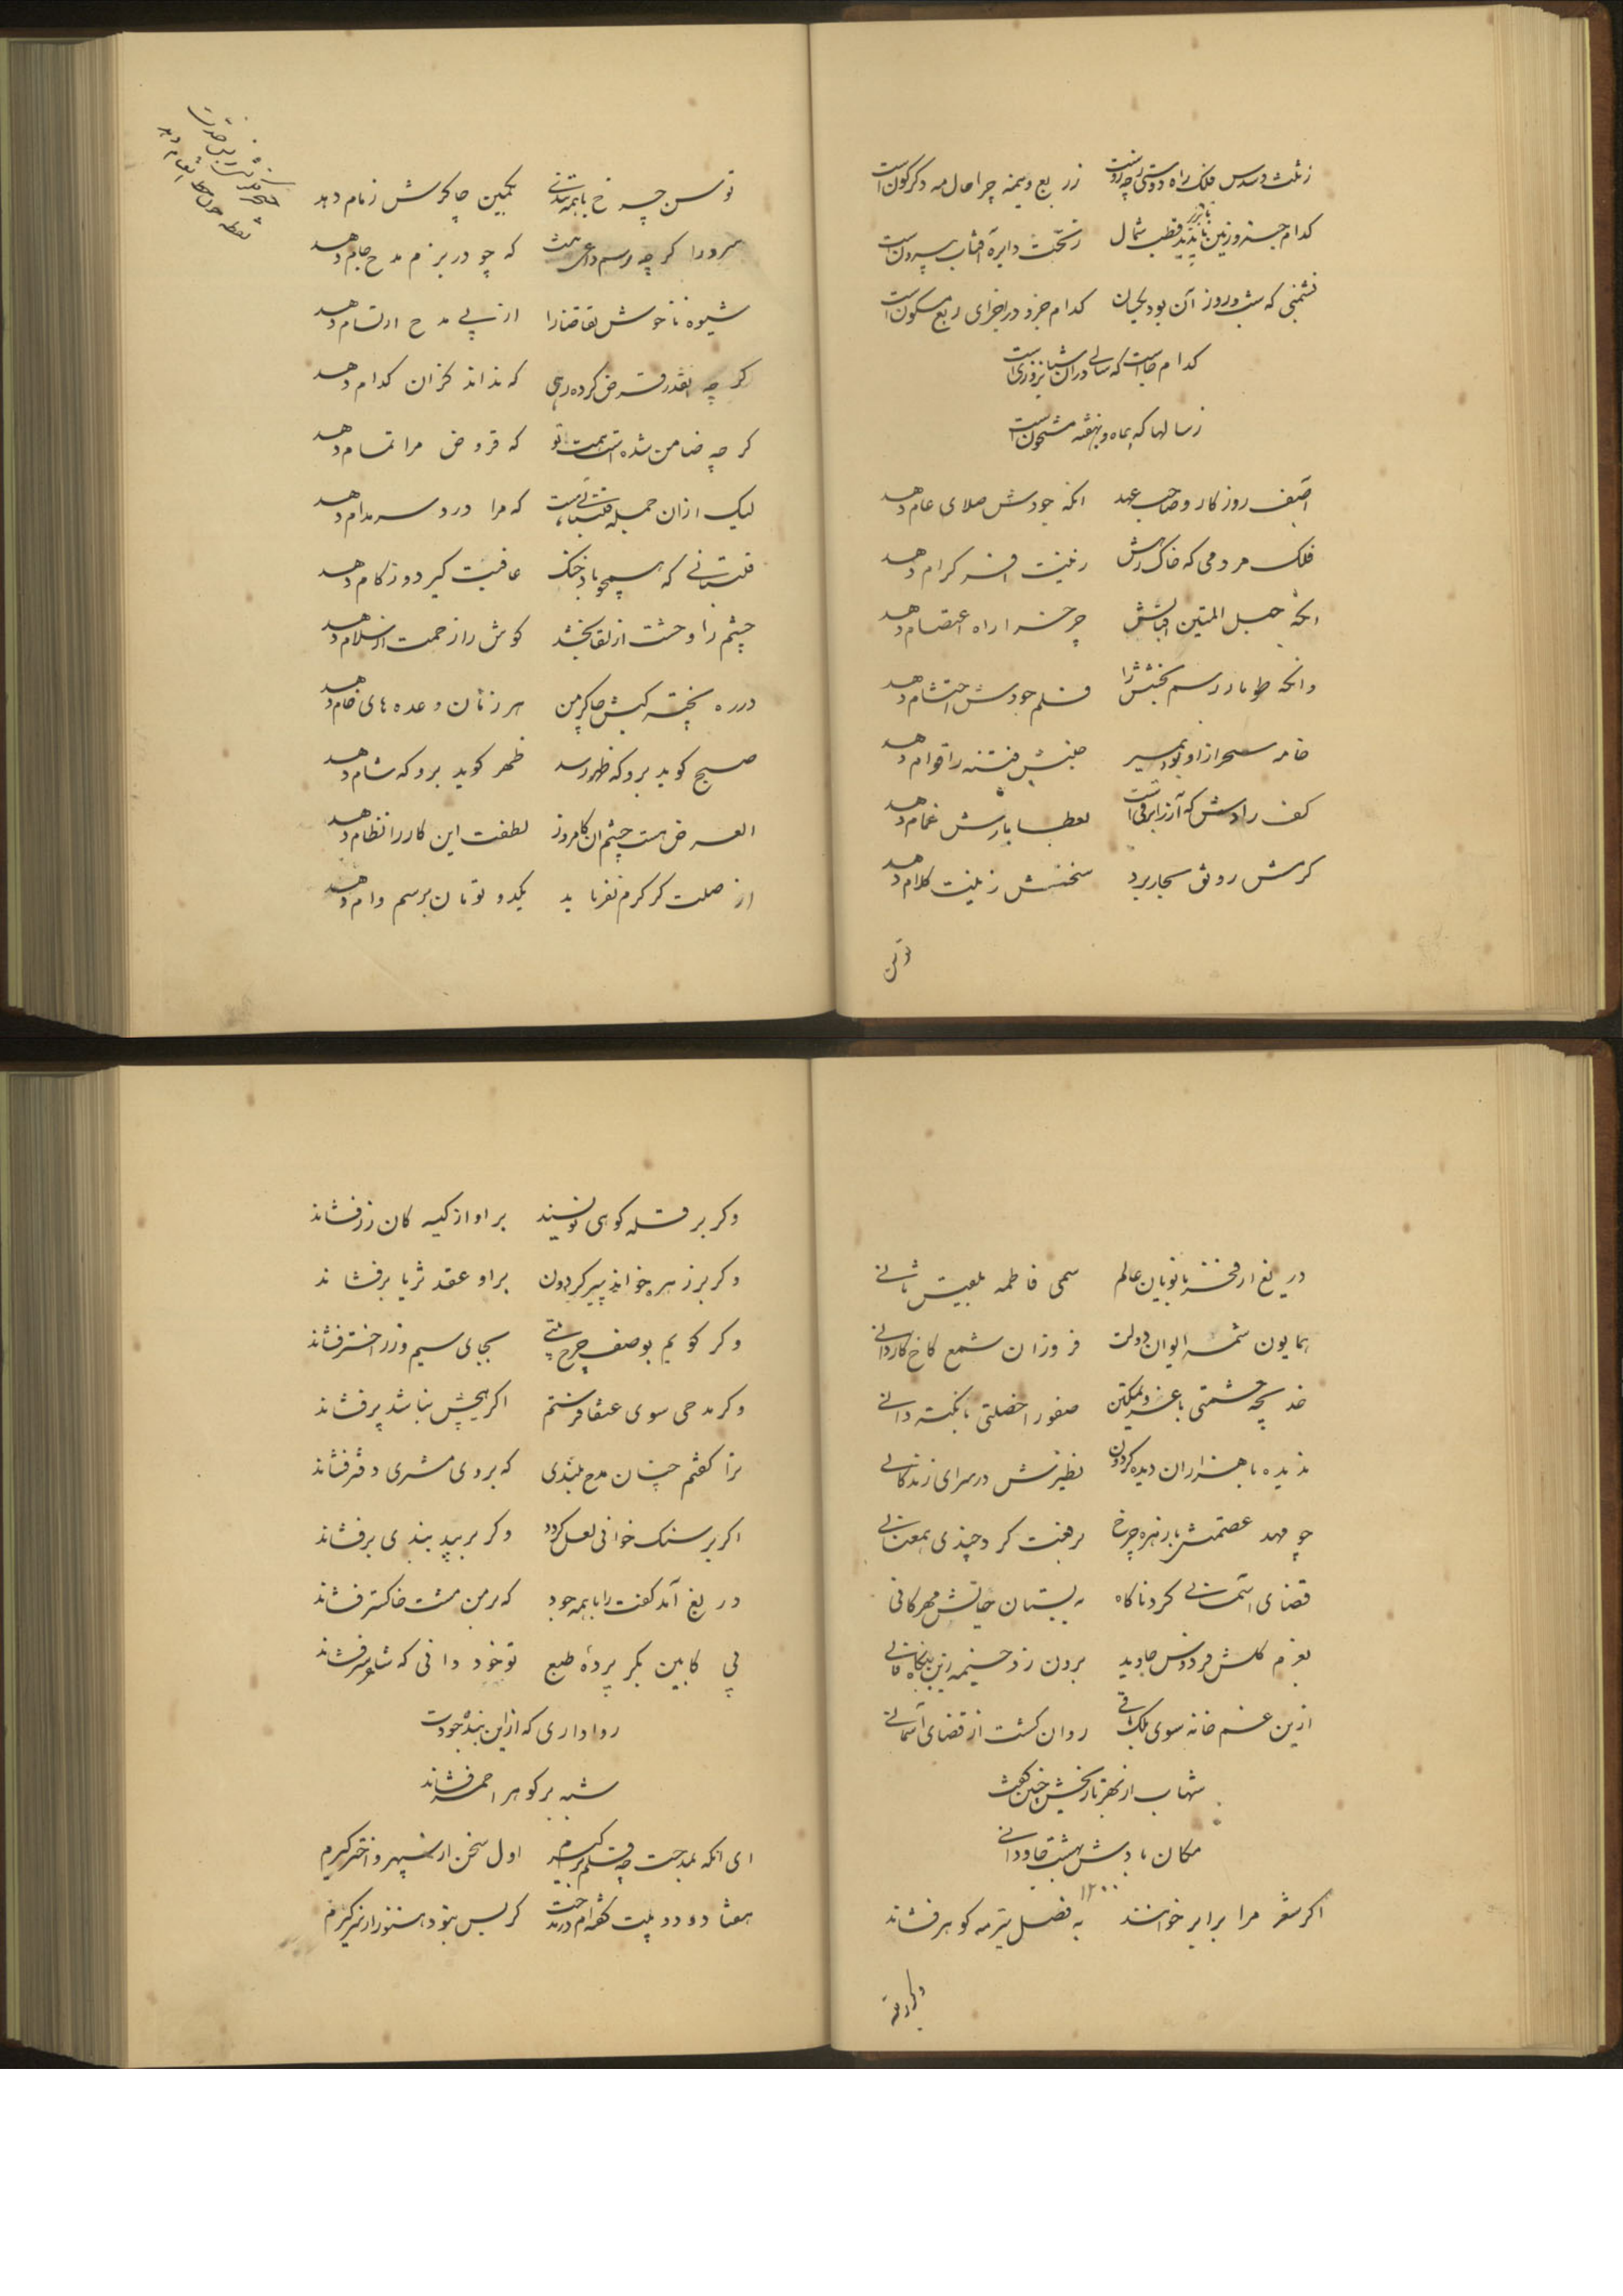 ز ثلث و سدس فلک راه دوستی چه روست ز ربع و نیمه چرا حال مه دگرگون است
کدام جزو زمین ناپدید قطب شمال ز تحت دایرهٔ آفتاب بیرون است
نشمنی که شب و روز آن بود یکسان کدام جزو در اجزای ربع مسکون است
کدام جاست که سالی در آن شبانروزی است
ز سالها که بماه و بهفته مشحون است
آصف روزکار و صاحب عهد انکه جودش صلای عام دهد
فلک مردمی که خاک رهش زینت افسر کرام دهد
انکه حبل المتین اقبالش چرخ را راه اعتصام دهد
وانکه طومار رسم بخشش را قلم جودش احتشام دهد
خامه سحر از او بود بمسیر جنبش فتنه را قوام دهد
کف رادش که آزر ابر وفی است بعطا بارش غمام دهد
کرمش رونق سحاب برد سخنش زینت کلام دهد
توسن
توسن چرخ با همه تندی بکمین چاکرش زمام دهد
سرورا کرچه رسم داعی نیست که چو در بزم مدح جام دهد
شیوه ناخوش تقاضا را از پی مدح ارتسام دهد
کر چه آنقدر قرض کرده رهی که نداند کزان کدام دهد
کر چه ضامن شده است همت تو که قروض مرا تمام دهد
لیک ازان جمله قلتبانی هست که مرا درد سر مدام دهد
قلتبانی که همچو باد خنک عافیت کیرد و زکام دهد
چشم را وحشت از لقا بخشد کوش را زحمت از سلام دهد
در ره پخته کیش چاکر من هر زمان وعده های خام دهد
صبح کوید برو که ظهر رسد ظهر کوید برو که شام دهد
الغرض هست چشم ان کامروز لطفت این کار را نظام دهد
از صلت کر کرم نفرماید یکدو تومان برسم وام دهد
دریغ از فخر بانویان عالم سمی فاطمه بلقیس ثانی
همایون شمسه ایوان دولت فروزان شمع کاخ کاردانی
خدیجه حشمتی با عز و تمکین صفورا خصلتی با نکته دانی
ندیده با هزاران دیده کردون نظیرش در سرای زندکانی
چو مهد عصمتش با زهره چرخ برفعت کرد چندی همعنانی
قضای آسمانی کرد ناکاه به بستان حیاتش مهرکانی
بعزم کلشن فردوس جاوید برون زد خیمه زین بنکاه فانی
ازین غمخانه سوی ملک باقی روان کشت از قضای آسمانی
شهاب از بهر تاریخش چنین گفت
مکان بادش بهشت جاودانی
۱۲۰۰
اکر شعر مرا بر ابر خوانند به فصل تیر مه کوهر فشاند
وکر بر قله
وکر بر قله کوهی نویسند بر او از کیسه کان زر فشاند
وکر بر زهره خواند پیر کردون بر او عقد ثریا برفشاند
وکر کویم بوصف چرخ بیتی بجای سیم و زر اختر فشاند
وکر مدحی سوی عنقا فرستم اکر هیچش نباشد پر فشاند
ترا کفتم چنان مدح بلندی که بر وی مشتری دفتر فشاند
اکر بر سنک خوانی لعل کردد وکر بر بید بندی بر فشاند
دریغ آمد کفت را با همه جود که بر من مشت خاکستر فشاند
پی کابین بکر پردهٔ طبع تو خود دانی که شوهر زر فشاند
روا داری که از این بنده جودت
شبه بر کوهر احمر فشاند
ای انکه بمدحت چو قلم برگیرم اول سخن از سپهر و اختر کیرم
هفتاد و دو بیت کفته ام در مدحت کر بس نبود هنوز از سر کیرم